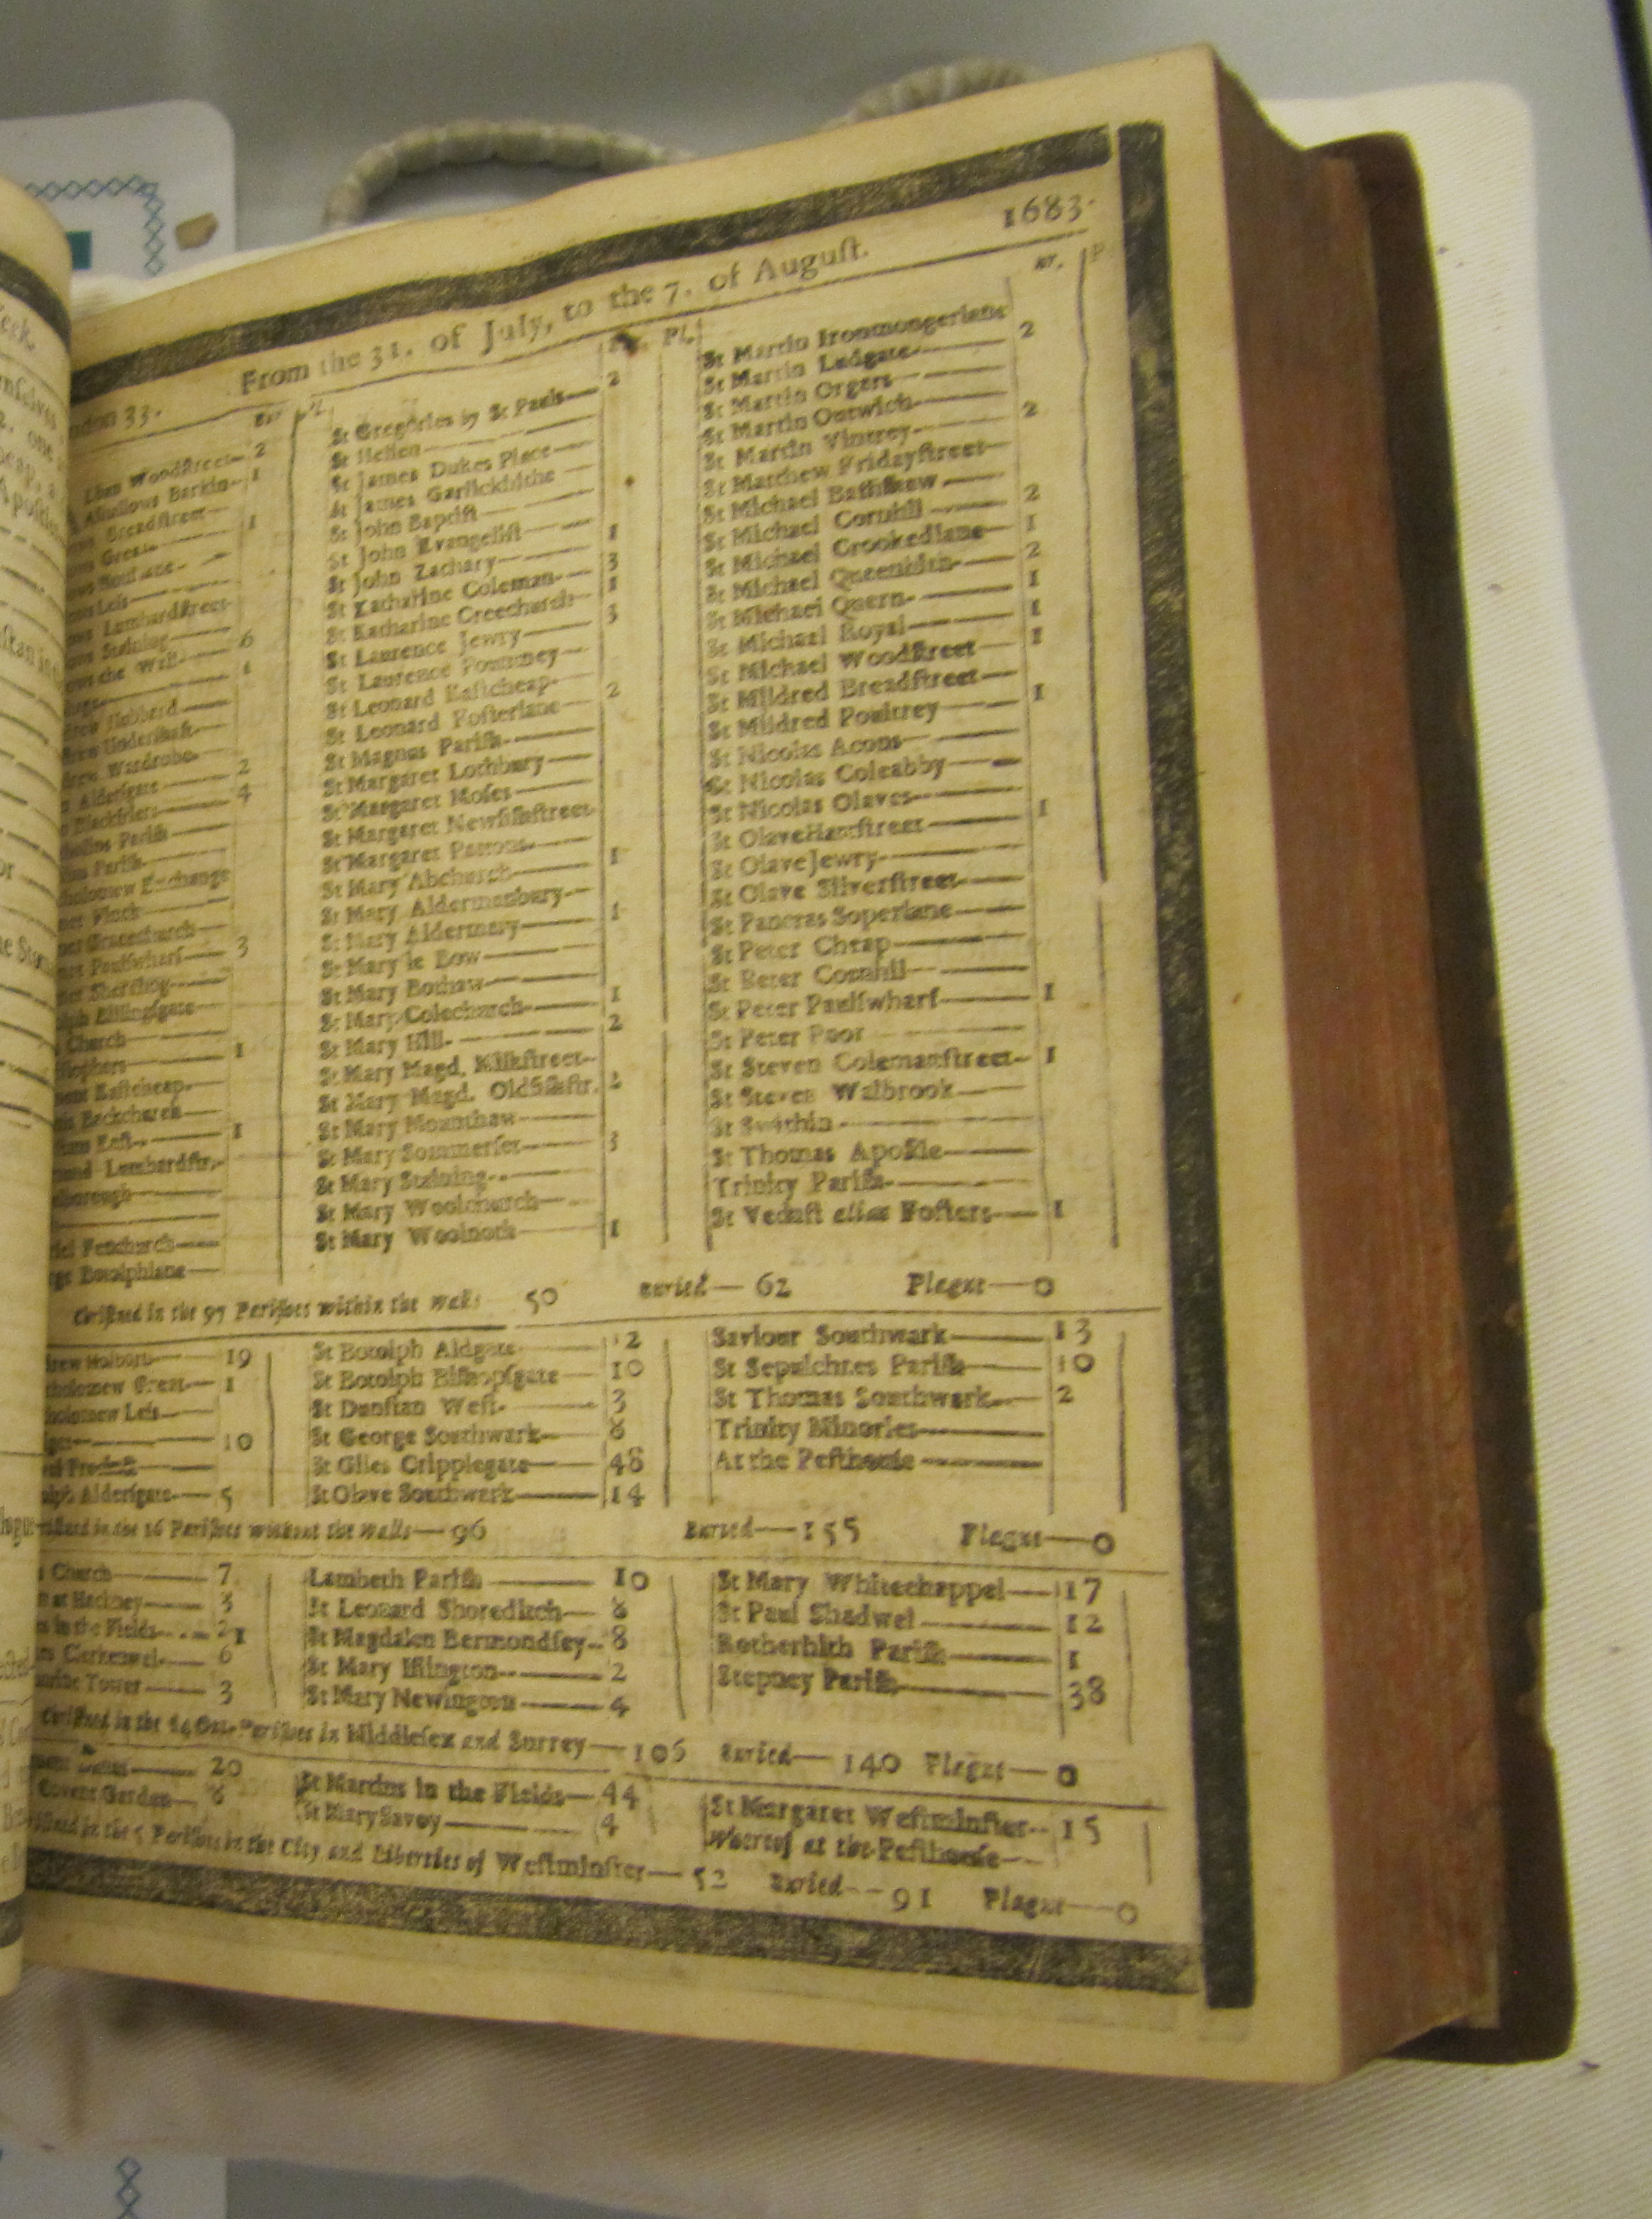 1683.
From the 31. of July, to the 7. of Auguſt.
33.
Bur Pl.
Woodſtreet— 2
Alhallows Barkin— 1
Breadſtreet
Great 1
Leſs
Lombardſtreet
Staining
the Wall 6
1
Hubbard
Underſhaft
Wardrobe
Alderſgate 2
Blackfriers 4
Pariſh
Pariſh
Exchange
Finck
Gracechurch
Paulſwharf— 3
Sherehog
Billingſgate
Church
1
Eaſtcheap
Backchurch
Eaſt 1
Lombardſtr.
Fenchurch
Botolphlane
Bur. Pl.
St Gregories by St Pauls— 2
St Hellen
St James Dukes Place
St James Garlickhithe
St John Baptiſt
St John Evangeliſt
St John Zachary 1
St Katharine Coleman 3
St Katharine Creechurch 1
St Laurence Jewry 3
St Laurence Pountney
St Leonard Eaſtcheap
St Leonard Foſterlane 2
St Magnus Pariſh
St Margaret Lothbury
St Margaret Moſes
St Margaret Newfiſhſtreet
St Margaret Pattons
St Mary Abchurch 1
St Mary Aldermanbury
St Mary Aldermary 1
St Mary le Bow
St Mary Bothaw
St Mary Colechurch 1
St Mary Hill 2
St Mary Magd. Milkſtreet
St Mary Magd. Oldfiſhſtr. 2
St Mary Mounthaw
St Mary Sommerſet 3
St Mary Staining
St Mary Woolchurch
St Mary Woolnoth 1
Bur. P
St Martin Ironmongerlane
St Martin Ludgate 2
St Martin Orgars
St Martin Outwich
St Martin Vintrey 2
St Matthew Fridayſtreet
St Michael Baſſiſhaw
St Michael Cornhil 2
St Michael Crookedlane 1
St Michael Queenhith 2
St Michael Quern 1
St Michael Royal 1
St Michael Woodſtreet 1
St Mildred Breadſtreet
St Mildred Poultrey 1
St Nicolas Acons
St Nicolas Coleabby
St Nicolas Olaves
St Olave Hartſtreet 1
St Olave Jewry
St Olave Silverſtreet
St Pancras Soperlane
St Peter Cheap
St Peter Cornhil
St Peter Paulſwharf 1
St Peter Poor
St Steven Colemanſtreet 1
St Steven Walbrook
St Swithin
St Thomas Apoſtle
Trinity Pariſh
St Vedaſt alias Foſters 1
Chriſtned in the 97 Pariſhes within the walls 50 Buried— 62 Plague— 0
Holborn 19
Great 1
Leſs
10
Alderſgate 5
St Botolph Aldgate 12
St Botolph Biſhopſgate 10
St Dunſtan Weſt 3
St George Southwark 8
St Giles Cripplegate 48
St Olave Southwark 14
Saviour Southwark 13
St Sepulchres Pariſh 10
St Thomas Southwark 2
Trinity Minories
At the Peſthouſe
in the 16 Pariſhes without the Walls— 96 Buried— 155 Plague— 0
Church 7
at Hackney 3
in the Fields 21
Clerkenwel 6
Tower 3
Lambeth Pariſh 10
St Leonard Shoreditch 8
St Magdalen Bermondſey 8
St Mary Iſlington 2
St Mary Newington 4
St Mary Whitechappel 17
St Paul Shadwel 12
Rotherhith Pariſh 1
Stepney Pariſh 38
Chriſtned in the 14 Out-Pariſhes in Middleſex and Surrey— 106 Buried— 140 Plague— 0
20
Covent Garden— 8
St Martins in the Fields— 44
St Mary Savoy 4
St Margaret Weſtminſter 15
Whereof at the Peſthouſe
in the 5 Pariſhes in the City and Liberties of Weſtminſter— 52 Buried— 91 Plague— 0